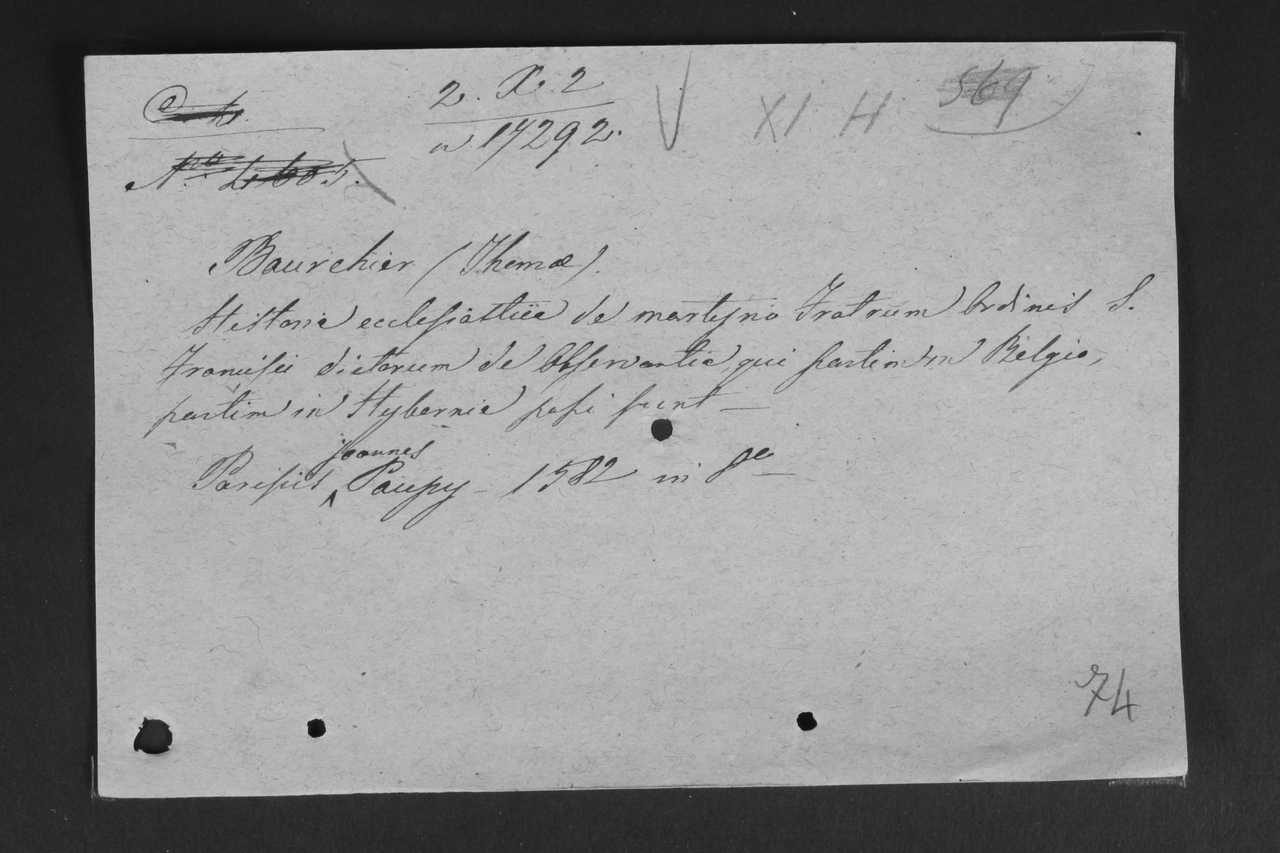 2. X. 2
n 17292.
V XI H 569
Bourchier (Thomæ).
Historia ecclesiastica de martyrio Fratrum Ordinis S.
Francisci dictorum de Observantia, qui partim in Belgio,
partim in Hybernia passi sunt —
Parisiis joannes Poupy — 1582 in 8º —
74